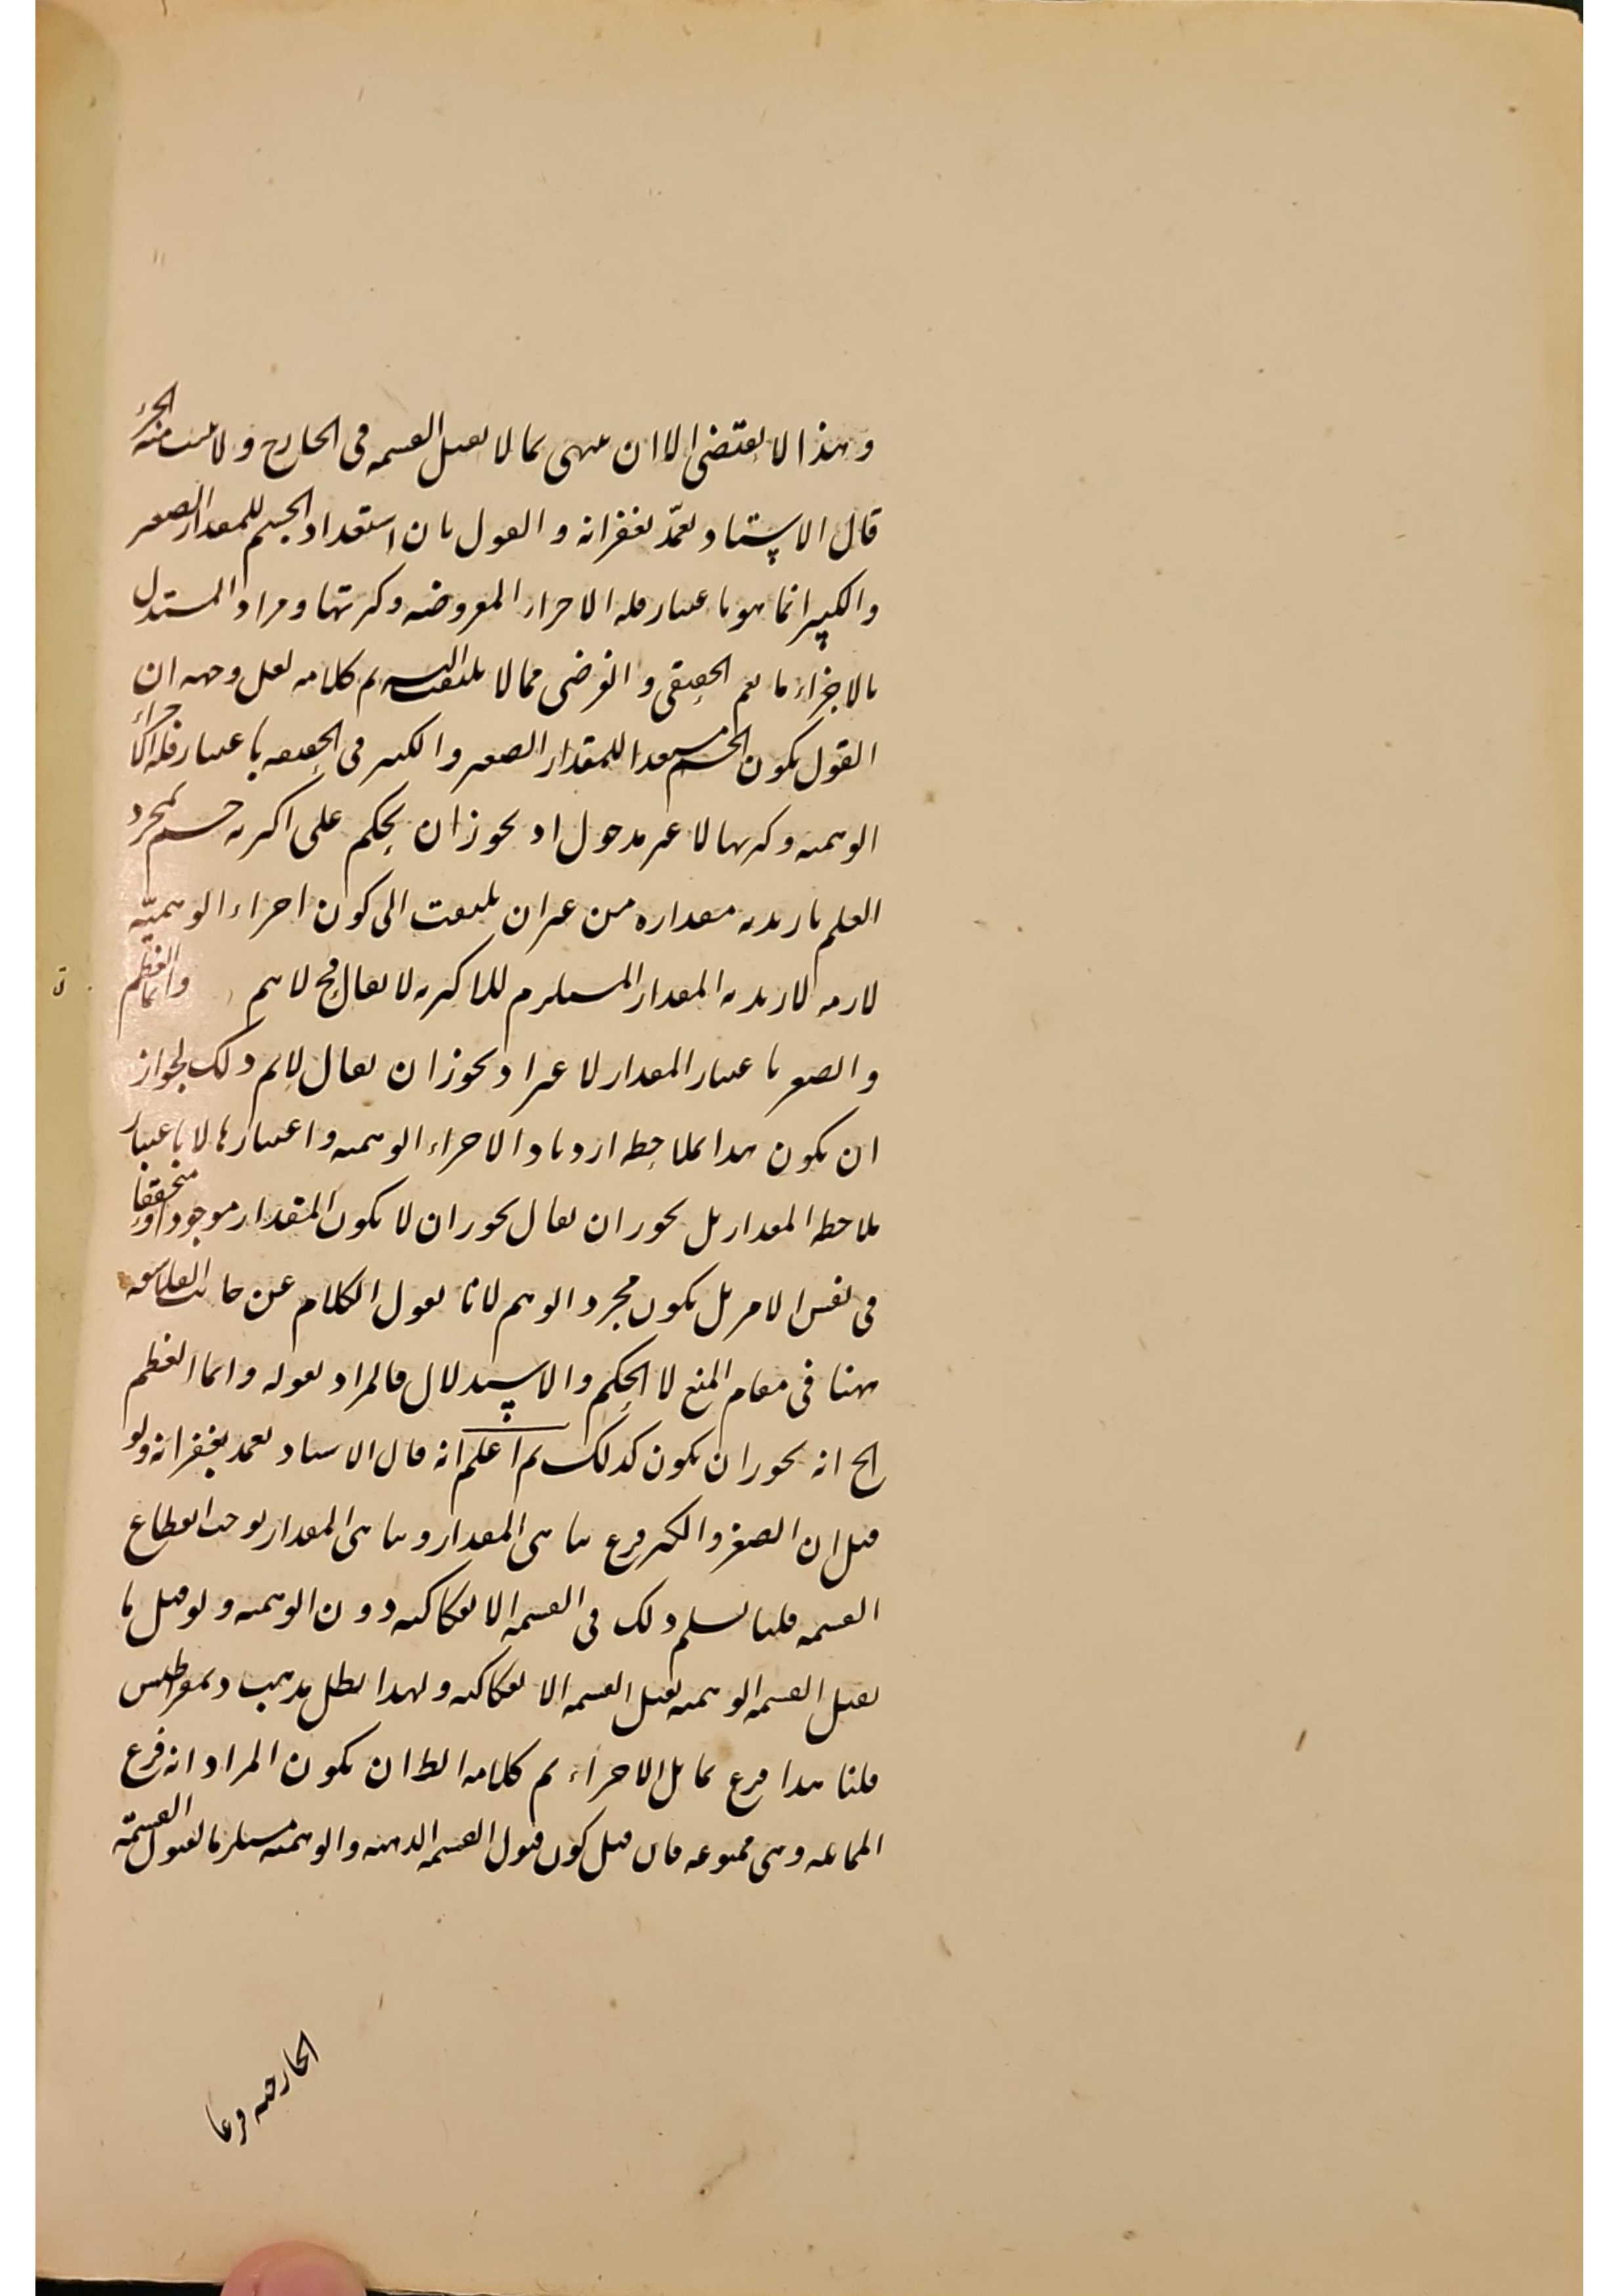 وهذا لا يقتضى الا ان ينتهى بما لا يقبل القسمه فى الخارج ولا يثبت منه الجزء
قال الاستاد تغمّد بغفرانه والقول بان استعداد الجسم للمقدار الصغير
والكبير انما هو باعتبار قله الاجزاء المفروضه وكثرتها ومراد المستدل
بالاجزاء ما يعم الحقيقى والفرضى مما لا يلتفت اليه تم كلامه لعل وجهه ان
القول بكون الجسم مستعدا للمقدار الصغير والكبير فى الحقيقه باعتبار قله الاجزاء
الوهميه وكثرتها لا غير مدخول اذ يجوز ان يحكم على اكبريه جسم بمجرد
العلم بازيديه مقداره من غير ان يلتفت الى كون اجزاء الوهميّه
لازمه لازيديه المقدار المستلزم للاكبريه لا يقال فح لا يم وانما العظم
والصغر باعتبار المقدار لا غير اذ يجوز ان يقال لا يم ذلك لجواز
ان يكون هذا بملاحظه ازدياد الاجزاء الوهميه واعتبارها لا باعتبار
ملاحظه المقدار بل يجوز ان يقال يجوز ان لا يكون المقدار موجودا ومتحققا
فى نفس الامر بل يكون مجرد الوهم لانا نقول الكلام عن جانب الفلاسفه
ههنا فى مقام المنع لا الحكم والاستدلال فالمراد بقوله وانما العظم
الخ انه يجوز ان يكون كذلك ثم اعلم انه قال الاستاد تغمد بغفرانه ولو
قيل ان الصغر والكبر فرع تناهى المقدار وتناهى المقدار يوجب انقطاع
القسمه قلنا نسلم ذلك فى القسمه الانفكاكيه دون الوهميه ولو قيل ما
يقبل القسمه الوهميه يقبل القسمه الانفكاكيه ولهذا بطل مذهب ديمقراطيس
قلنا هذا فرع تماثل الاجزاء تم كلامه الظ ان يكون المراد انه فرع
المماثله وهى ممنوعه فان قيل كون قبول القسمه الذهنيه والوهميه مستلزما لقبول القسمّه
الخارجيه فرعا